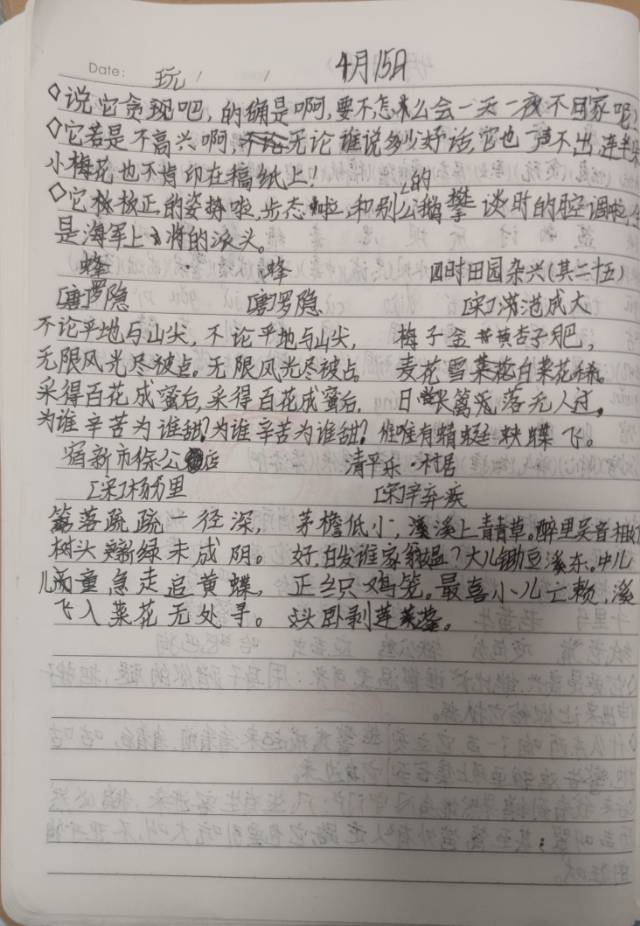 Date: 玩 4月15日
◇说它贪玩吧，的确是啊，要不怎么会一天一夜不回家呢
◇它若是不高兴啊，无论谁说多少好话，它也一声不出，连半朵
小梅花也不肯印在稿纸上！
◇它板板正正的姿势啦，步态啦，和别的公鹅攀谈时的腔调啦，
是海军上将的派头。
蜂 蜂 四时田园杂兴(其二十五)
[唐]罗隐 [唐]罗隐 [宋]范成大
不论平地与山尖，不论平地与山尖， 梅子金黄杏子肥，
无限风光尽被占。无限风光尽被占。 麦花雪白菜花稀。
采得百花成蜜后，采得百花成蜜后， 日长篱落无人过，
为谁辛苦为谁甜？为谁辛苦为谁甜？ 唯有蜻蜓蛱蝶飞。
宿新市徐公店 清平乐·村居
[宋]杨万里 [宋]辛弃疾
篱落疏疏一径深， 茅檐低小，溪上青青草。醉里吴音相
树头新绿未成阴。 好，白发谁家翁媪？大儿锄豆溪东，中儿
儿童急走追黄蝶， 正织鸡笼。最喜小儿亡赖，溪
飞入菜花无处寻。 头卧剥莲蓬。